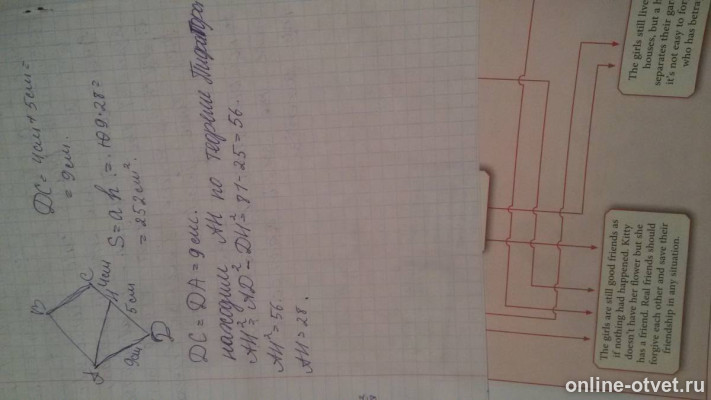 DC = 4см + 5см =
= 9см.
S = a h = 9·28 =
= 252см².
B
C
4см
H
5см
A
9см
D
DC = DA = 9см.
находим AH по теореме Пифагора
AH² = AD² - DH² = 81 - 25 = 56.
AH² = 56.
AH = 28.
The girls still live
houses, but a h
separates their gar
it's not easy to for
who has betra
The girls are still good friends as
if nothing had happened. Kitty
doesn't have her flower but she
has a friend. Real friends should
forgive each other and save their
friendship in any situation.
online-otvet.ru